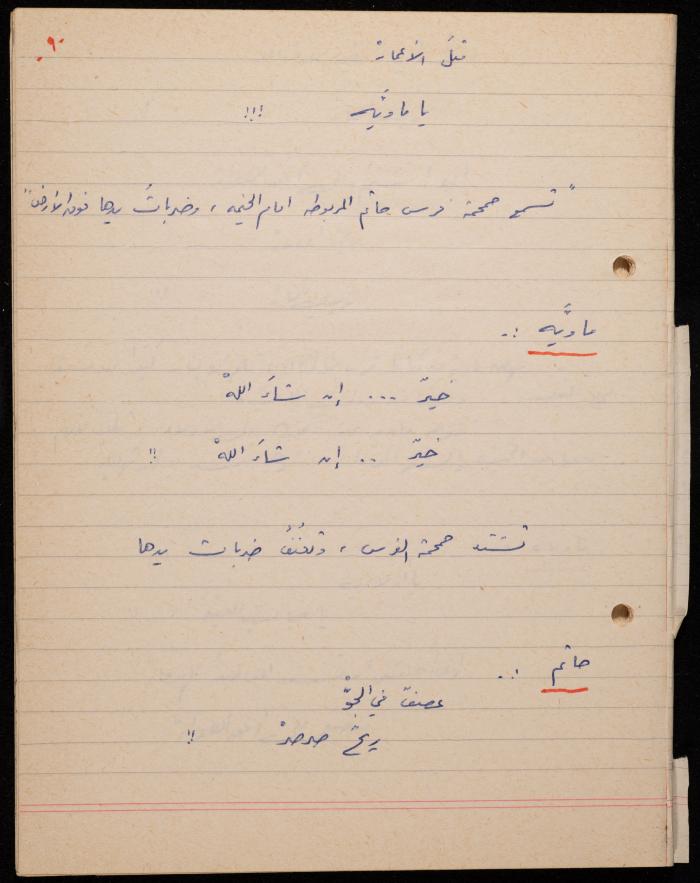 ٩٠
قبلَ الأعمارْ
يا ماويَّه !!!
" تسمع حمحمة فرس حاتم المربوطه امام الخيمه ، وضرباتُ يدها فوق الأرض "
ماويَّه :.
خيرٌ ... إن شاءَ اللهْ
خيرٌ .. إن شاءَ اللهْ !!
تشتد حمحمة الفرس ، وتعنُفُ ضربات يدها
حاتم :.
عصفٌ في الجوّْ
ريحٌ صرصرْ !!